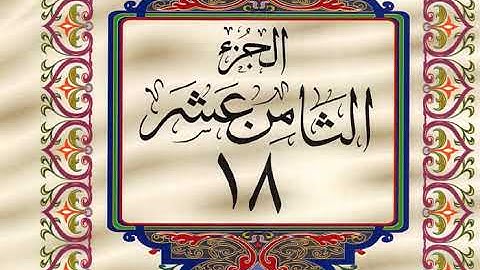 الجزء
الثامن عشر
١٨